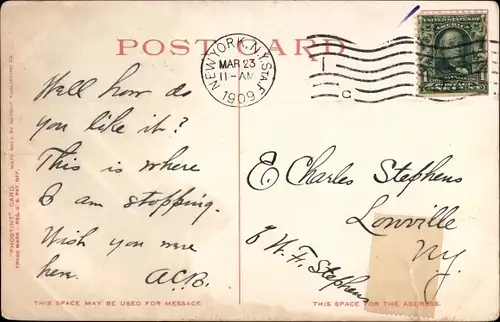 POST CARD
NEW YORK, N.Y. STA. F
MAR 23
11-AM
1909
C
Well how do
you like it?
This is where
I am stopping.
Wish you were
here. ACB.
E. Charles Stephens
Lowville
Ny.
W. F. Stephens
THIS SPACE MAY BE USED FOR MESSAGE.
THIS SPACE FOR THE ADDRESS.
"PHOSTINT" CARD. MADE ONLY BY DETROIT PUBLISHING CO.
TRADE MARK - REG. U.S. PAT. OFF.